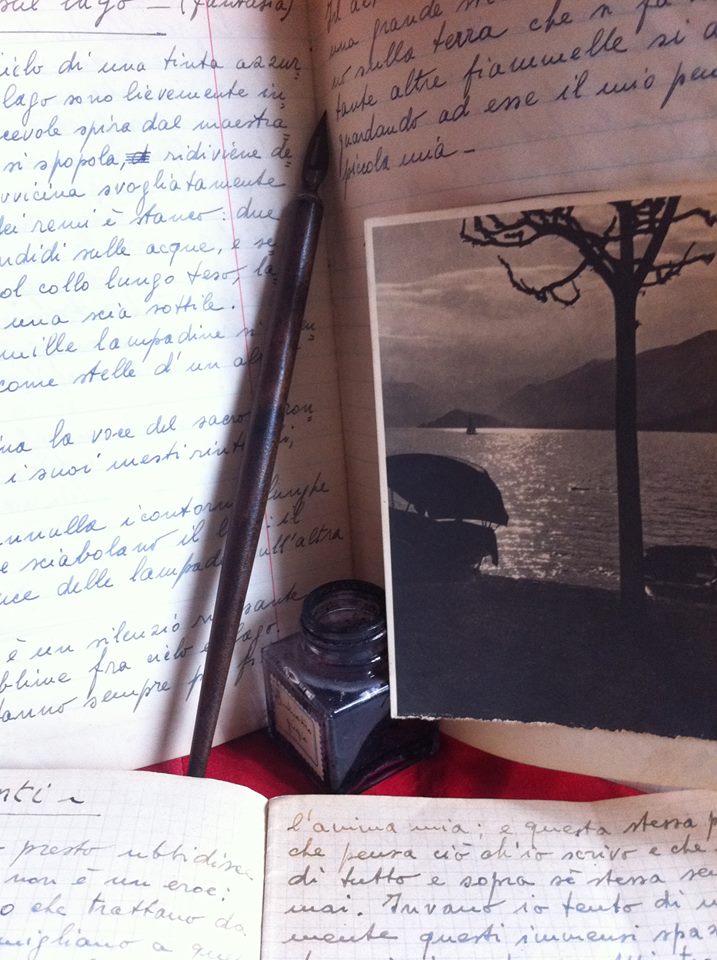 sul lago — (fantasia)
cielo di una tinta azzur=
lago sono lievemente in=
cevole spira dal maestra=
si spopola, ridiviene de=
vvicina svogliatamente
dei remi è stanco: due
ndidi sulle acque, e se=
ol collo lungo teso, la=
una scia sottile.
mille lampadine si
come stelle d'un al
na la voce del sacro bron=
i suoi mesti rintocchi,
nnulla i contorni lunghe
e sciabolano il
uce delle lampade sull'altra
è un silenzio
fra cielo e lago.
anno sempre più fi
una grande
no sulla terra che
tante altre fiammelle si
guardando ad esse il mio pen
piccola mia —
nti
presto ubbidisce
non è un eroe:
o che trattano da
migliano a que
l'anima mia; e questa stessa p
che pensa ciò ch'io scrivo e che
di tutto e sopra sè stessa sen
mai. Invano io tento di
mente questi immensi spaz